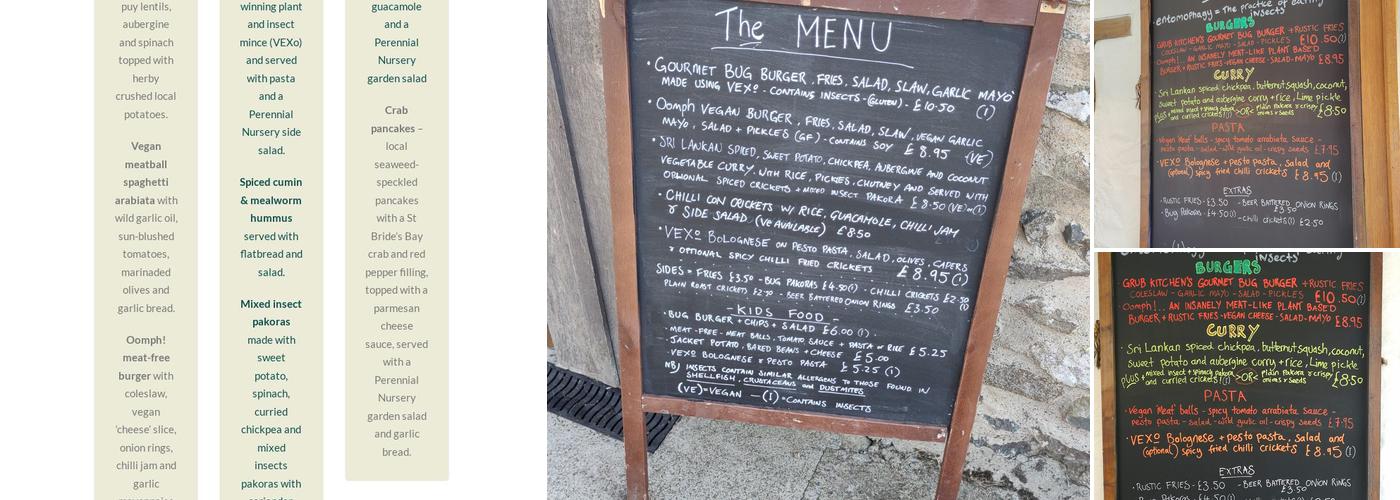 puy lentils,
aubergine
and spinach
topped with
herby
crushed local
potatoes.
Vegan
meatball
spaghetti
arabiata with
wild garlic oil,
sun-blushed
tomatoes,
marinaded
olives and
garlic bread.
Oomph!
meat-free
burger with
coleslaw,
vegan
'cheese' slice,
onion rings,
chilli jam and
garlic
winning plant
and insect
mince (VEXo)
and served
with pasta
and a
Perennial
Nursery side
salad.
Spiced cumin
& mealworm
hummus
served with
flatbread and
salad.
Mixed insect
pakoras
made with
sweet
potato,
spinach,
curried
chickpea and
mixed
insects
pakoras with
guacamole
and a
Perennial
Nursery
garden salad
Crab
pancakes –
local
seaweed-
speckled
pancakes
with a St
Bride's Bay
crab and red
pepper filling,
topped with a
parmesan
cheese
sauce, served
with a
Perennial
Nursery
garden salad
and garlic
bread.
The MENU
• GOURMET BUG BURGER, FRIES, SALAD, SLAW, GARLIC MAYO
MADE USING VEXo - CONTAINS INSECTS - (GLUTEN) - £10.50 (I)
• Oomph VEGAN BURGER, FRIES, SALAD, SLAW, VEGAN GARLIC
MAYO, SALAD + PICKLES (GF) - CONTAINS SOY £8.95 (VE)
• SRI LANKAN SPICED, SWEET POTATO, CHICKPEA, AUBERGINE AND COCONUT
VEGETABLE CURRY. WITH RICE, PICKLES, CHUTNEY AND SERVED WITH
OPTIONAL SPICED CRICKETS + MIXED INSECT PAKORA £8.50 (VE) or (I)
• CHILLI CON CRICKETS W/ RICE, GUACAMOLE, CHILLI JAM
& SIDE SALAD (VE AVAILABLE) £8.50
• VEXo BOLOGNESE ON PESTO PASTA, SALAD, OLIVES, CAPERS
& OPTIONAL SPICY CHILLI FRIED CRICKETS £8.95 (I)
SIDES = FRIES £3.50 - BUG PAKORAS £4.50(I) - CHILLI CRICKETS £2.50
PLAIN ROAST CRICKETS £2.50 - BEER BATTERED ONION RINGS £3.50 (I)
- KIDS FOOD -
• BUG BURGER + CHIPS + SALAD £6.00 (I)
• MEAT-FREE - MEAT BALLS, TOMATO SAUCE + PASTA or RICE £5.25
• JACKET POTATO, BAKED BEANS + CHEESE £5.00
• VEXo BOLOGNESE & PESTO PASTA £5.25 (I)
NB) INSECTS CONTAIN SIMILAR ALLERGENS TO THOSE FOUND IN
SHELLFISH, CRUSTACEANS and DUSTMITES
(VE)=VEGAN - (I)=CONTAINS INSECTS
entomophagy = The practice of eating
insects
BURGERS
GRUB KITCHEN'S GOURMET BUG BURGER + RUSTIC FRIES
COLESLAW - GARLIC MAYO - SALAD - PICKLES £10.50(I)
Oomph!.. AN INSANELY MEAT-LIKE PLANT BASED
BURGER + RUSTIC FRIES - VEGAN CHEESE - SALAD - MAYO £8.95
CURRY
• Sri Lankan spiced chickpea, butternut squash, coconut,
sweet potato and aubergine curry + rice, Lime pickle
PLUS + mixed insect + spinach pakora >OR< plain pakora & crispy
and curried crickets!(I) onions & seeds £8.50
PASTA
• Vegan 'Meat' balls - spicy tomato arrabiata sauce -
pesto pasta - salad - wild garlic oil - crispy seeds £7.95
• VEXo Bolognese + pesto pasta, salad and
(optional) spicy fried chilli crickets £8.95(I)
EXTRAS
• RUSTIC FRIES - £3.50 - BEER BATTERED ONION RINGS
£3.50
• Bug Pakoras - £4.50(I) - Chilli crickets(I) £2.50
insects
BURGERS
GRUB KITCHEN'S GOURMET BUG BURGER + RUSTIC FRIES
COLESLAW - GARLIC MAYO - SALAD - PICKLES £10.50(I)
Oomph!.. AN INSANELY MEAT-LIKE PLANT BASED
BURGER + RUSTIC FRIES - VEGAN CHEESE - SALAD - MAYO £8.95
CURRY
• Sri Lankan spiced chickpea, butternut squash, coconut,
sweet potato and aubergine curry + rice, Lime pickle
PLUS + mixed insect + spinach pakora >OR< plain pakora & crispy
and curried crickets!(I) onions & seeds £8.50
PASTA
• Vegan 'Meat' balls - spicy tomato arrabiata sauce -
pesto pasta - salad - wild garlic oil - crispy seeds £7.95
• VEXo Bolognese + pesto pasta, salad and
(optional) spicy fried chilli crickets £8.95(I)
EXTRAS
• RUSTIC FRIES - £3.50 - BEER BATTERED ONION RINGS
£3.50